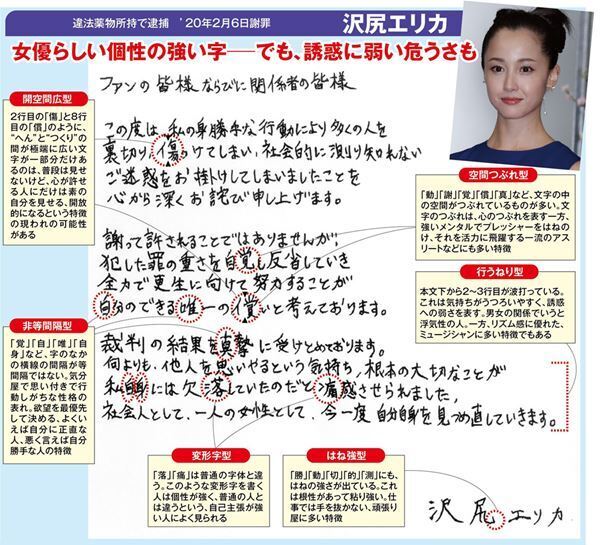 違法薬物所持で逮捕 '20年2月6日謝罪
沢尻エリカ
女優らしい個性の強い字──でも、誘惑に弱い危うさも
ファンの皆様ならびに関係者の皆様
この度は、私の身勝手な行動により多くの人を
裏切り、傷つけてしまい、社会的に測り知れない
ご迷惑をお掛けしてしまいましたことを
心から深くお詫び申し上げます。
謝って許されることではありませんが、
犯した罪の重さを自覚し反省していき
全力で更生に向けて努力することが
自分のできる唯一の償いと考えております。
裁判の結果を真摯に受けとめております。
何よりも、他人を思いやるという気持ち、根本の大切なことが
私自身には欠落していたのだと痛感させられました。
社会人として、一人の女性として、今一度自分自身を見つめ直していきます。
沢尻エリカ
開空間広型
2行目の「傷」と8行
目の「償」のように、
“へん”と“つくり”の
間が極端に広い文
字が一部分だけあ
るのは、普段は見せ
ないけど、心が許せ
る人にだけは素の
自分を見せる、開放
的になるという特徴
の現われの可能性
がある
非等間隔型
「覚」「自」「唯」「自
身」など、字のなか
の横線の間隔が等
間隔ではない。気分
屋で思い付きで行
動しがちな性格の
表れ。欲望を最優先
して決める、よくい
えば自分に正直な
人、悪く言えば自分
勝手な人の特徴
空間つぶれ型
「動」「謝」「覚」「償」「真」など、文字の中
の空間がつぶれているものが多い。文
字のつぶれは、心のつぶれを表す一方、
強いメンタルでプレッシャーをはねの
け、それを活力に飛躍する一流のアス
リートなどにも多い特徴
行うねり型
本文下から2〜3行目が波打っている。
これは気持ちがうつろいやすく、誘惑
への弱さを表す。男女の関係でいうと
浮気性の人。一方、リズム感に優れた、
ミュージシャンに多い特徴でもある
変形字型
「落」「痛」は普通の字体と違
う。このような変形字を書く
人は個性が強く、普通の人と
は違うという、自己主張が強
い人によく見られる
はね強型
「勝」「動」「切」「的」「測」にも、
はねの強さが出ている。これ
は根性があって粘り強い。仕
事では手を抜かない、頑張り
屋に多い特徴